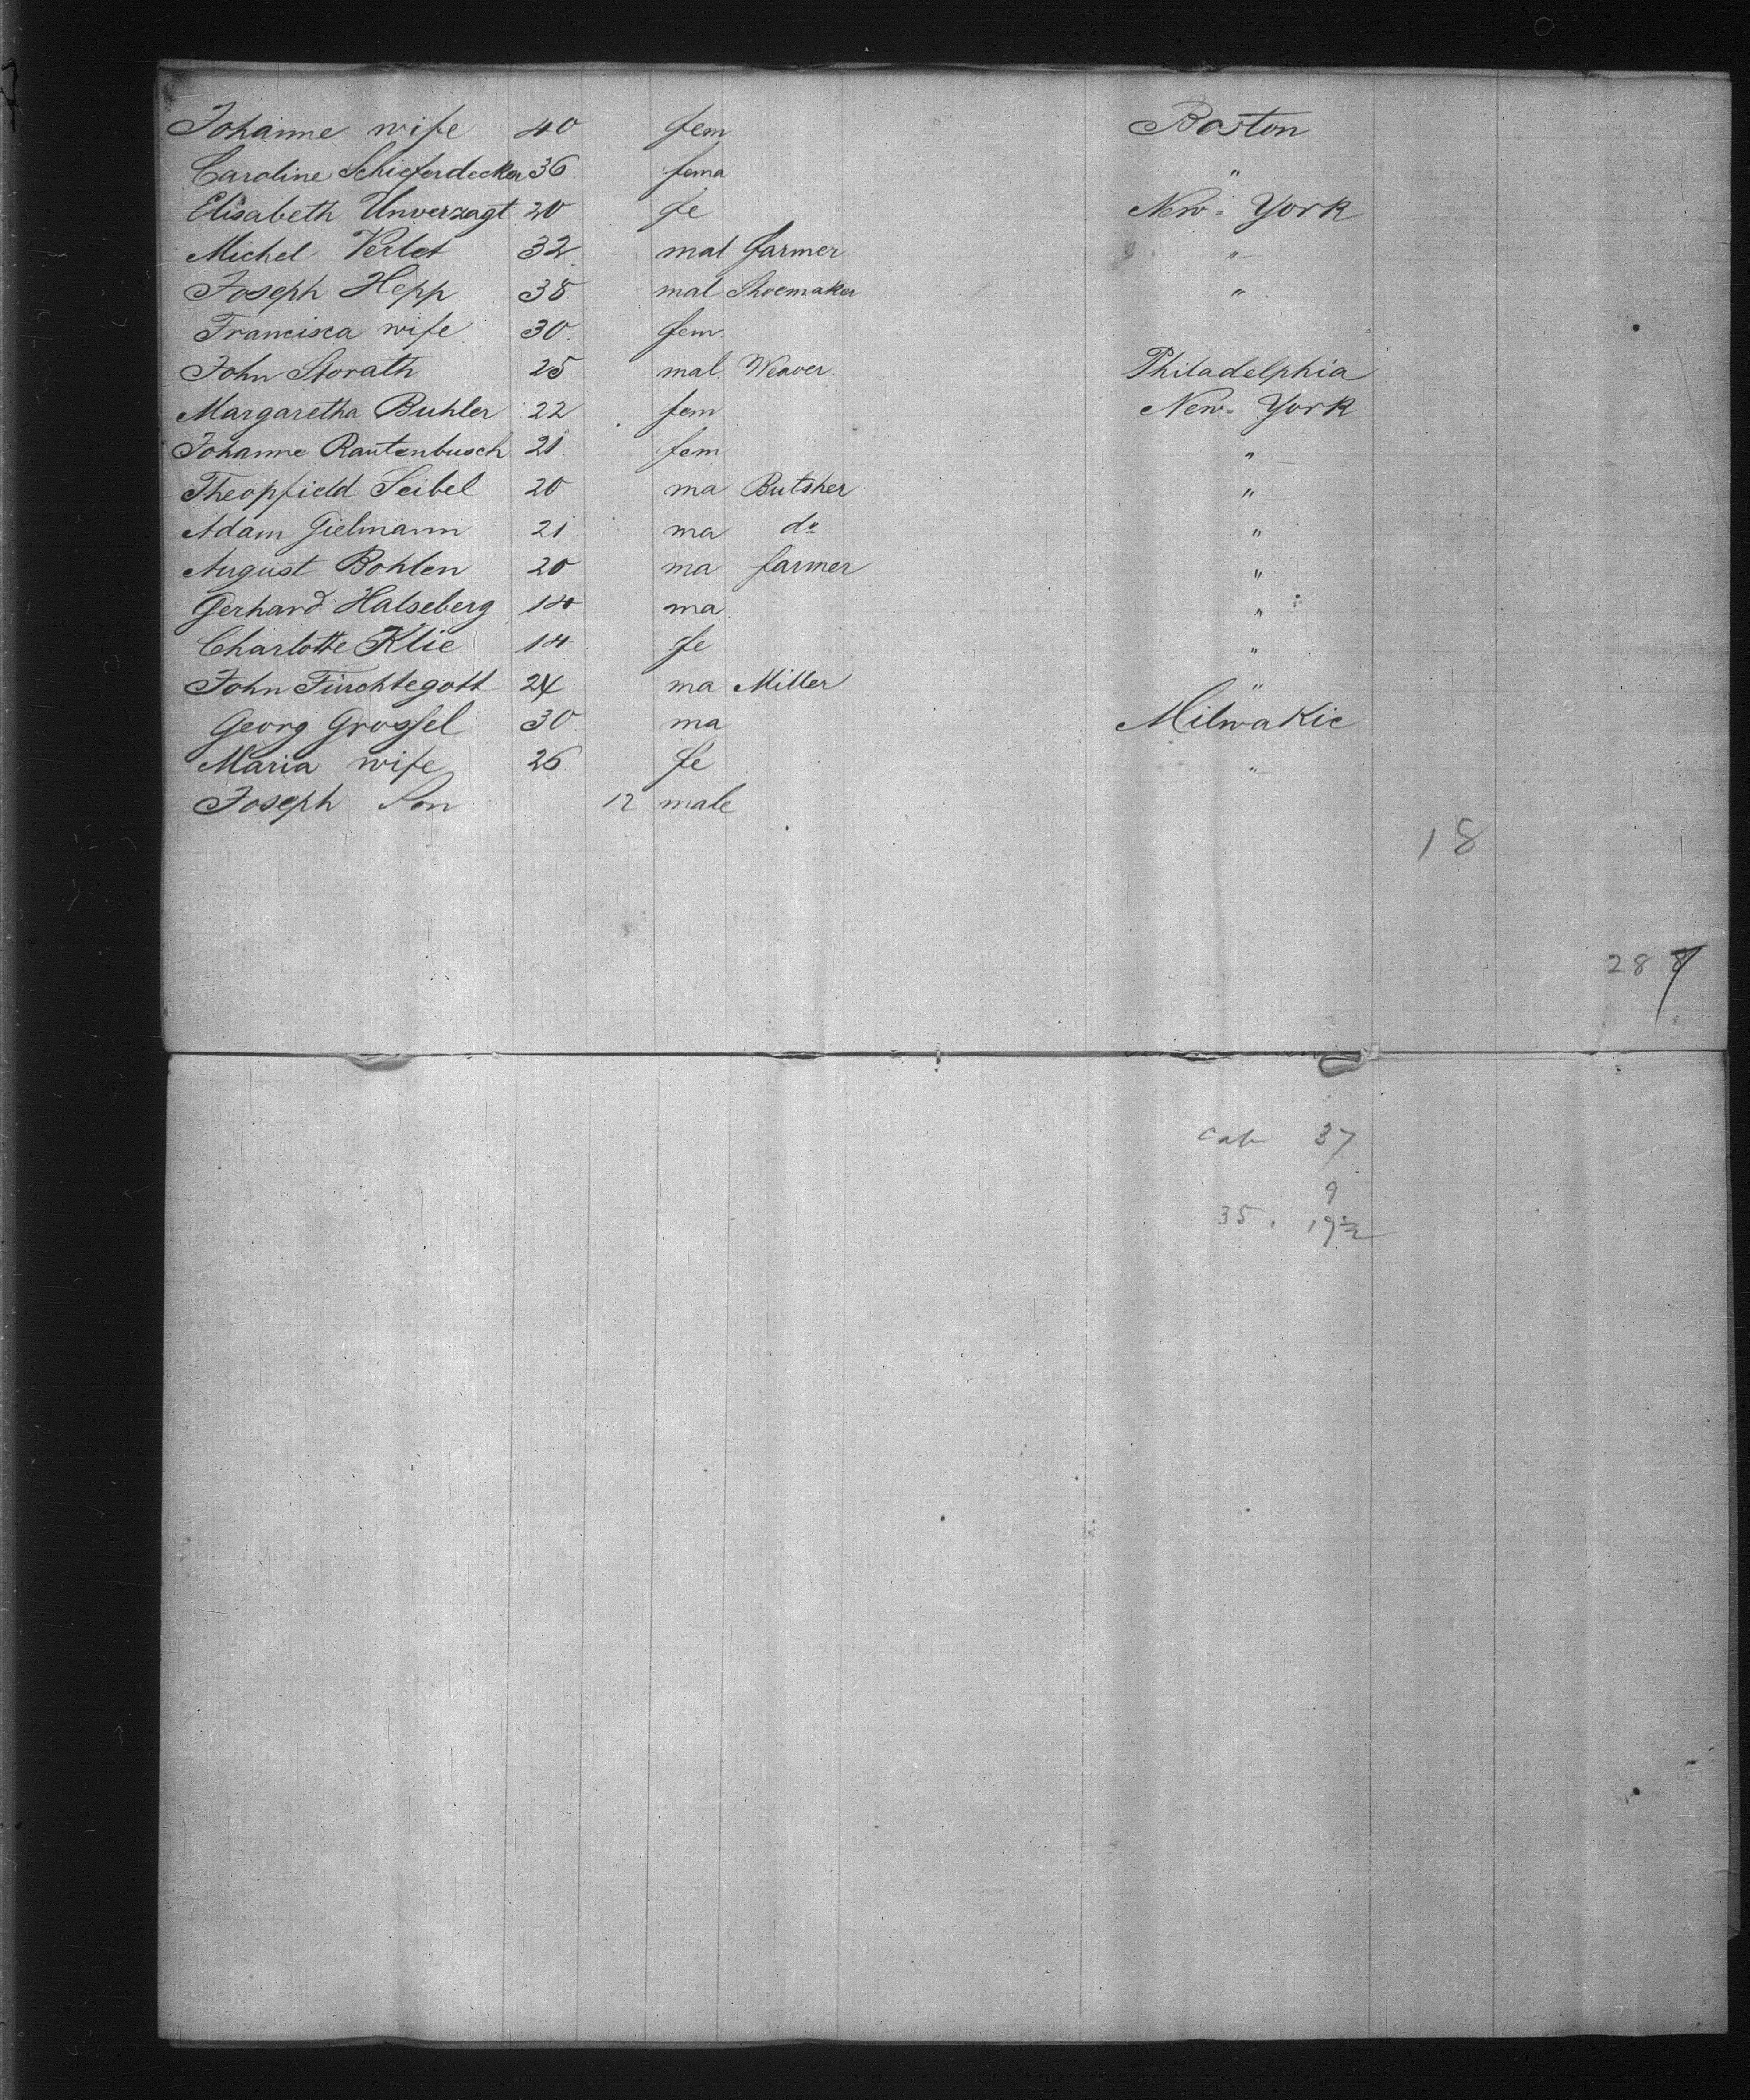 Johanne wife 40 fem Boston
Caroline Schieferdecker 36 fema "
Elisabeth Unverzagt 20 fe New-York
Michel Verlet 32 mal farmer "
Joseph Hepp 38 mal Shoemaker "
Francisca wife 30 fem
John Storath 25 mal Weaver Philadelphia
Margaretha Buhler 22 fem New-York
Johanne Rautenbusch 21 fem "
Theopfield Seibel 20 ma Butsher "
Adam Gielmann 21 ma do "
August Bohlen 20 ma farmer "
Gerhard Halseberg 14 ma "
Charlotte Klie 14 fe "
John Fürchtegott 24 ma Miller "
Georg Grossel 30 ma Milwakie
Maria wife 26 fe "
Joseph Son 12 male
18
287
cab 37
9
35. 19½